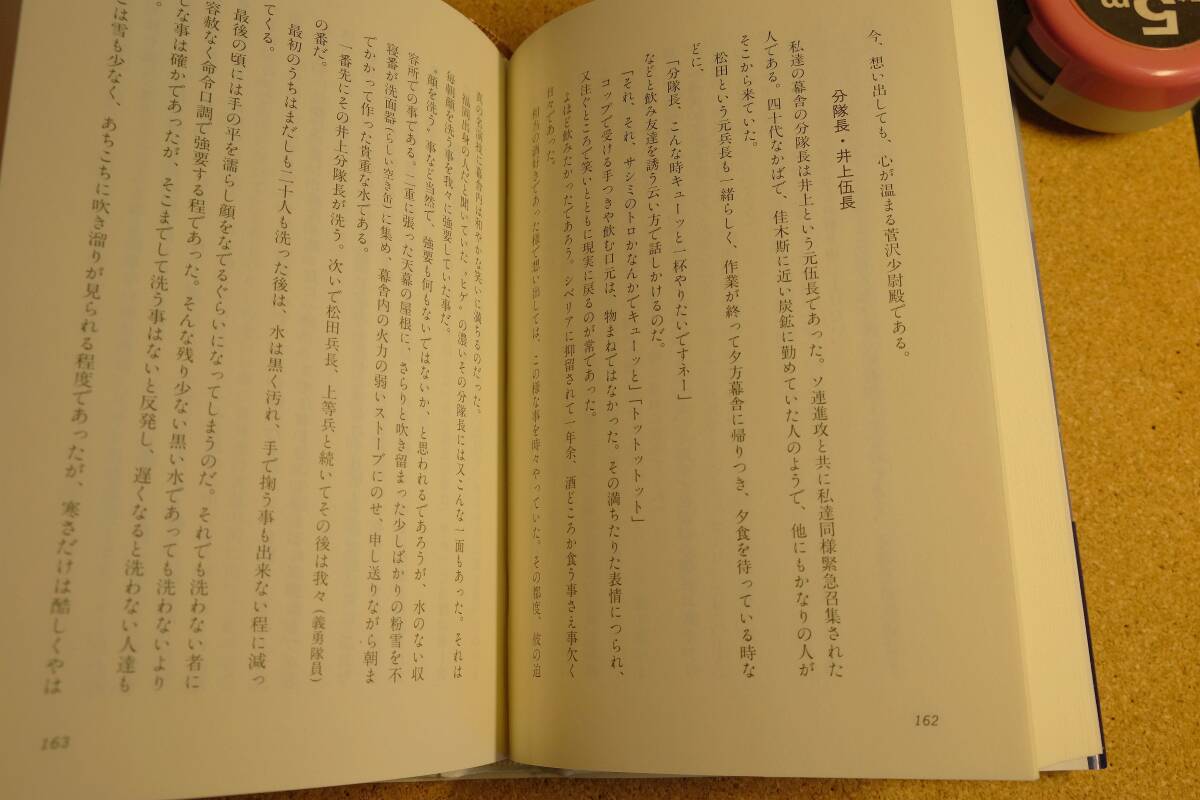 今、想い出しても、心が温まる菅沢少尉殿である。
分隊長・井上伍長
私達の幕舎の分隊長は井上という元伍長であった。ソ連進攻と共に私達同様緊急召集された
人である。四十代なかばで、佳木斯に近い炭鉱に勤めていた人のようで、他にもかなりの人が
そこから来ていた。
松田という元兵長も一緒らしく、作業が終って夕方幕舎に帰りつき、夕食を待っている時な
どに、
「分隊長、こんな時キューッと一杯やりたいですネー」
などと飲み友達を誘う云い方で話しかけるのだ。
「それ、それ、サシミのトロかなんかでキューッと」「トットットット」
コップで受ける手つきや飲む口元は、物まねではなかった。その満ちたりた表情につられ、
又注ぐところで笑いとともに現実に戻るのが常であった。
よほど飲みたかったであろう。シベリアに抑留されて一年余、酒どころか食う事さえ事欠く
日々であった。
相当の酒好きであった様で想い出しては、この様な事を時々やっていた。その都度、彼の迫
真の名演技に幕舎内は和やかな笑いに満ちるのだった。
福岡出身の人だと聞いていた〝ヒゲ〟の濃いその分隊長には又こんな一面もあった。それは
毎朝顔を洗う事を我々に強要していた事だ。
〝顔を洗う〟事など当然で、強要も何もないではないか、と思われるであろうが、水のない収
容所での事である。二重に張った天幕の屋根に、さらりと吹き留まった少しばかりの粉雪を不
寝番が洗面器(らしい空き缶)に集め、幕舎内の火力の弱いストーブにのせ、申し送りながら朝ま
でかかって作った貴重な水である。
一番先にその井上分隊長が洗う。次いで松田兵長、上等兵と続いてその後は我々(義勇隊員)
の番だ。
最初のうちはまだしも二十人も洗った後は、水は黒く汚れ、手で掬う事も出来ない程に減っ
てくる。
最後の頃には手の平を濡らし顔をなでるぐらいになってしまうのだ。それでも洗わない者に
容赦なく命令口調で強要する程であった。そんな残り少ない黒い水であっても洗わないより
な事は確かであったが、そこまでして洗う事はないと反発し、遅くなると洗わない人達も
。
は雪も少なく、あちこちに吹き溜りが見られる程度であったが、寒さだけは酷しくやは
162
163
5
m